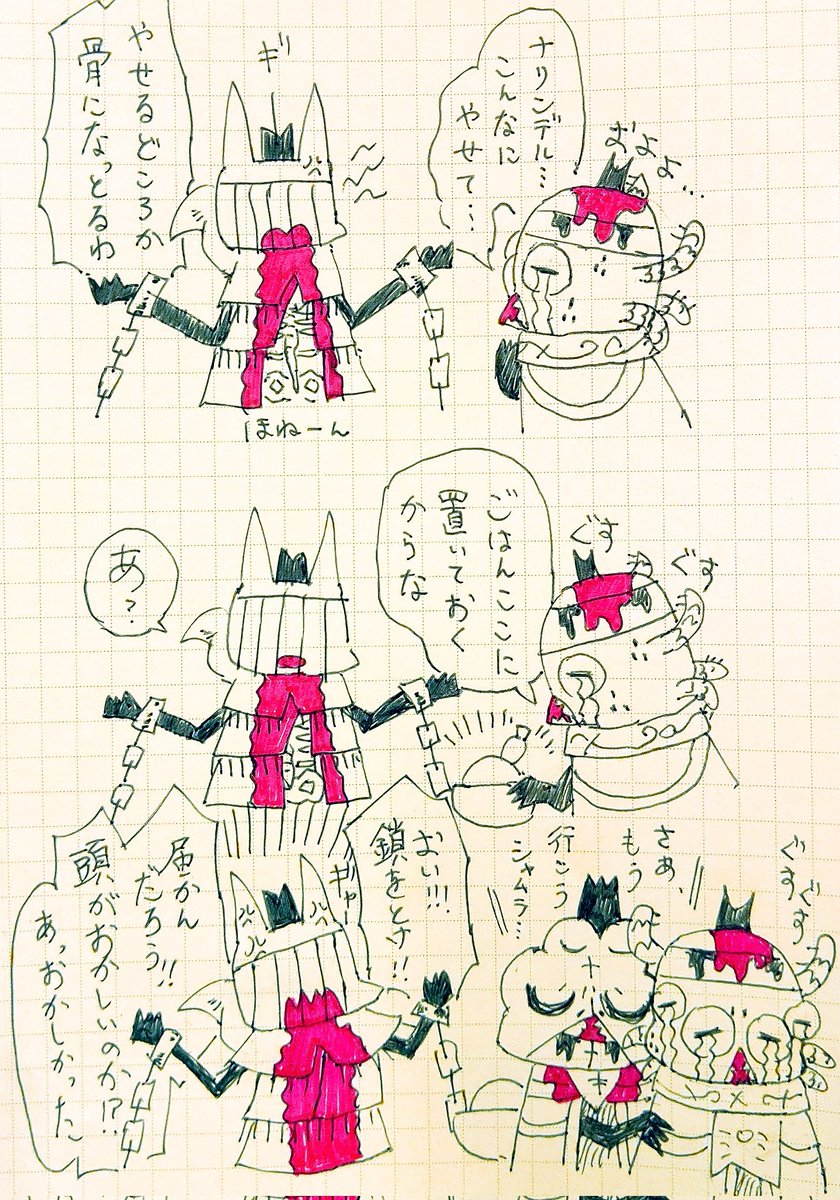 およよ…
ナリンデル…
こんなに
やせて…
ギ
やせるどころか
骨になっとるわ
ほねーん
ぐす
ぐす
ごはんここに
置いておく
からな
あ?
ぐすぐす
さあ、
もう
行こう
シャムラ…
おい!!!
鎖をとけ!!
ギャー
届かん
だろう!!
頭がおかしいのか!?
あっおかしかった